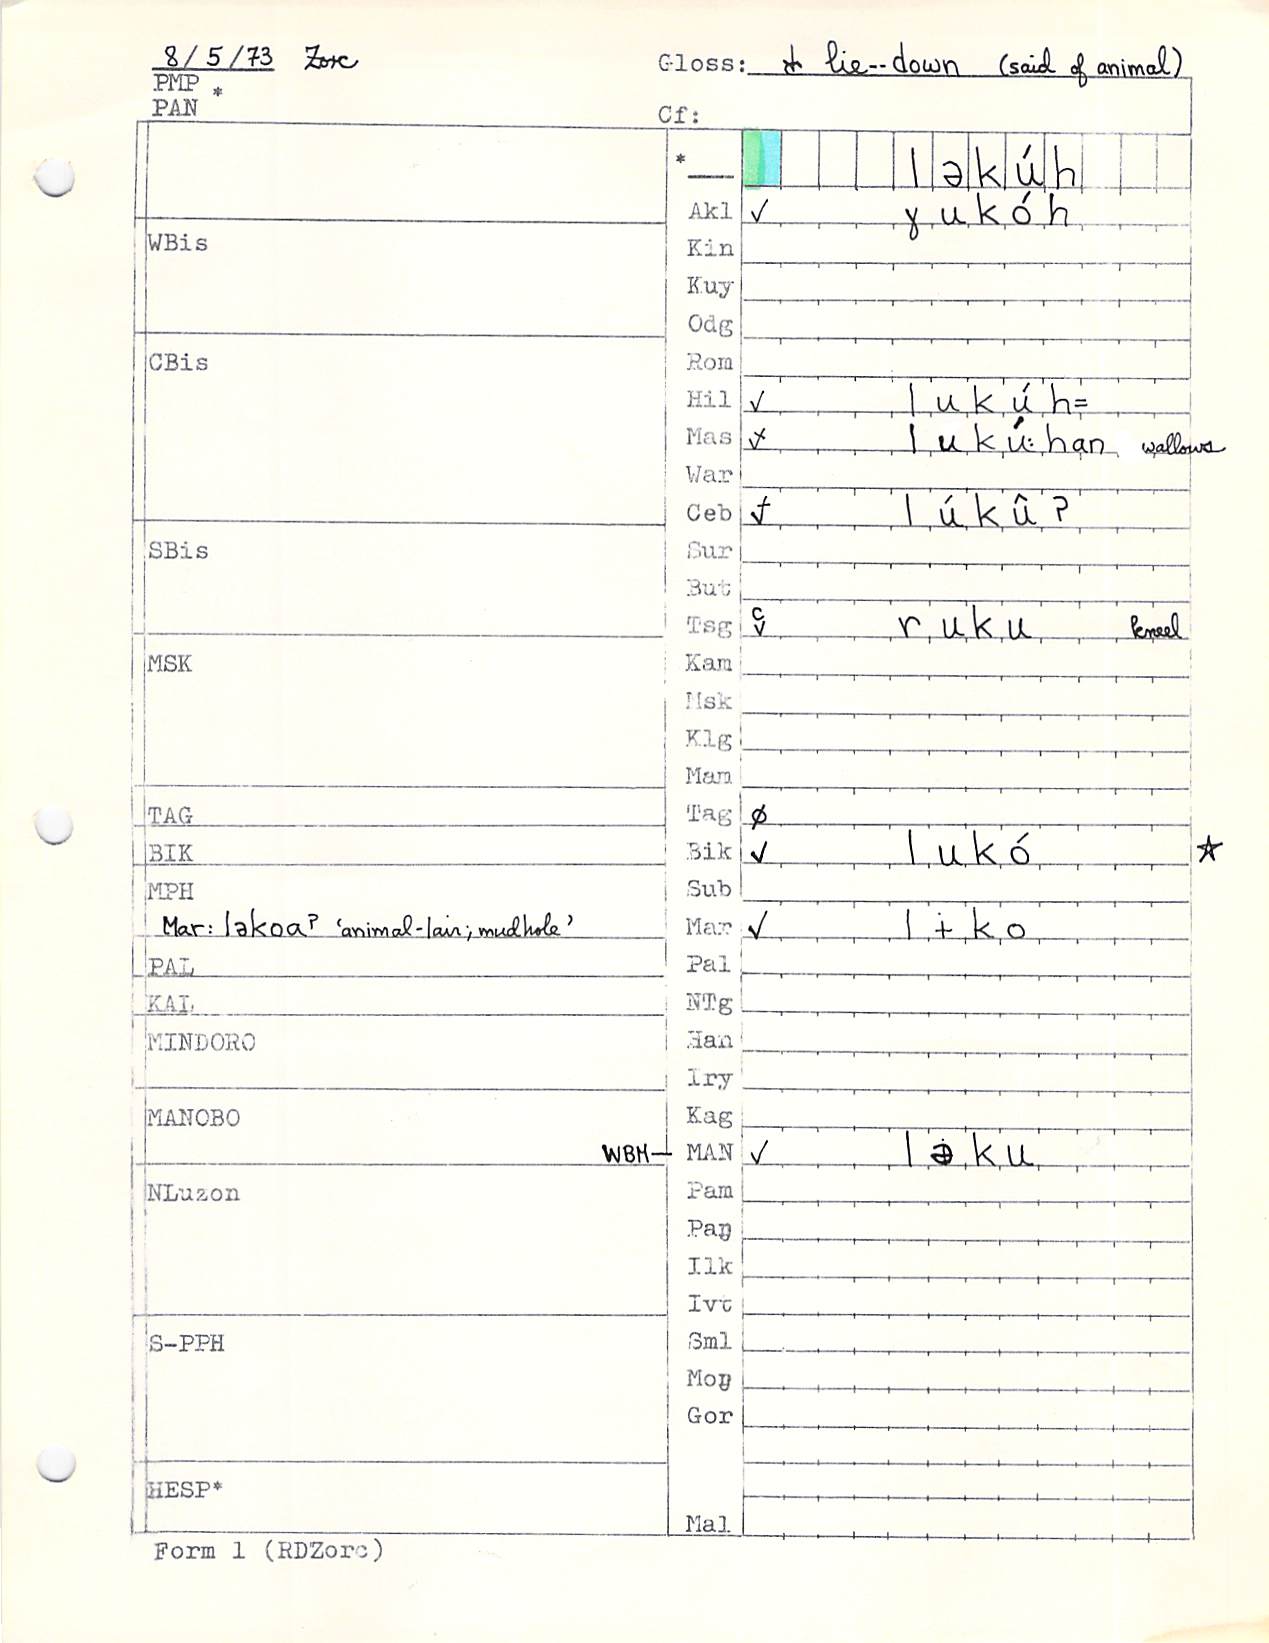 8/5/73 Zorc Gloss: lie--down (said of animal)
PMP *
PAN Cf:
* ləkúh
Akl ✓ ɣukóh
WBis
Kin
Kuy
Odg
CBis
Rom
Hil ✓ lukúh=
Mas lukú:han wallows
War
Ceb lúkû?
SBis
Sur
But
Tsg ruku kneel
MSK
Kam
Msk
Klg
Mam
TAG Tag ø
BIK Bik ✓ lukó ☆
MPH Sub
Mar: ləkoa? 'animal-lair; mudhole' Mar ✓ lɨko
PAL Pal
KAL NTg
MINDORO Han
Iry
MANOBO Kag
WBM— MAN ✓ ləku
NLuzon Pam
Paŋ
Ilk
Ivt
S-PPH Sml
Moŋ
Gor
HESP*
Mal
Form 1 (RDZorc)